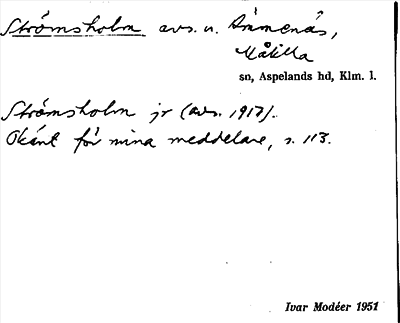 Strömsholm avs. u. Ämmenäs,
Målilla
sn, Aspelands hd, Klm. l.
Strömsholm jr (avs. 1917).
Okänt för mina meddelare, s. 113.
Ivar Modéer 1951